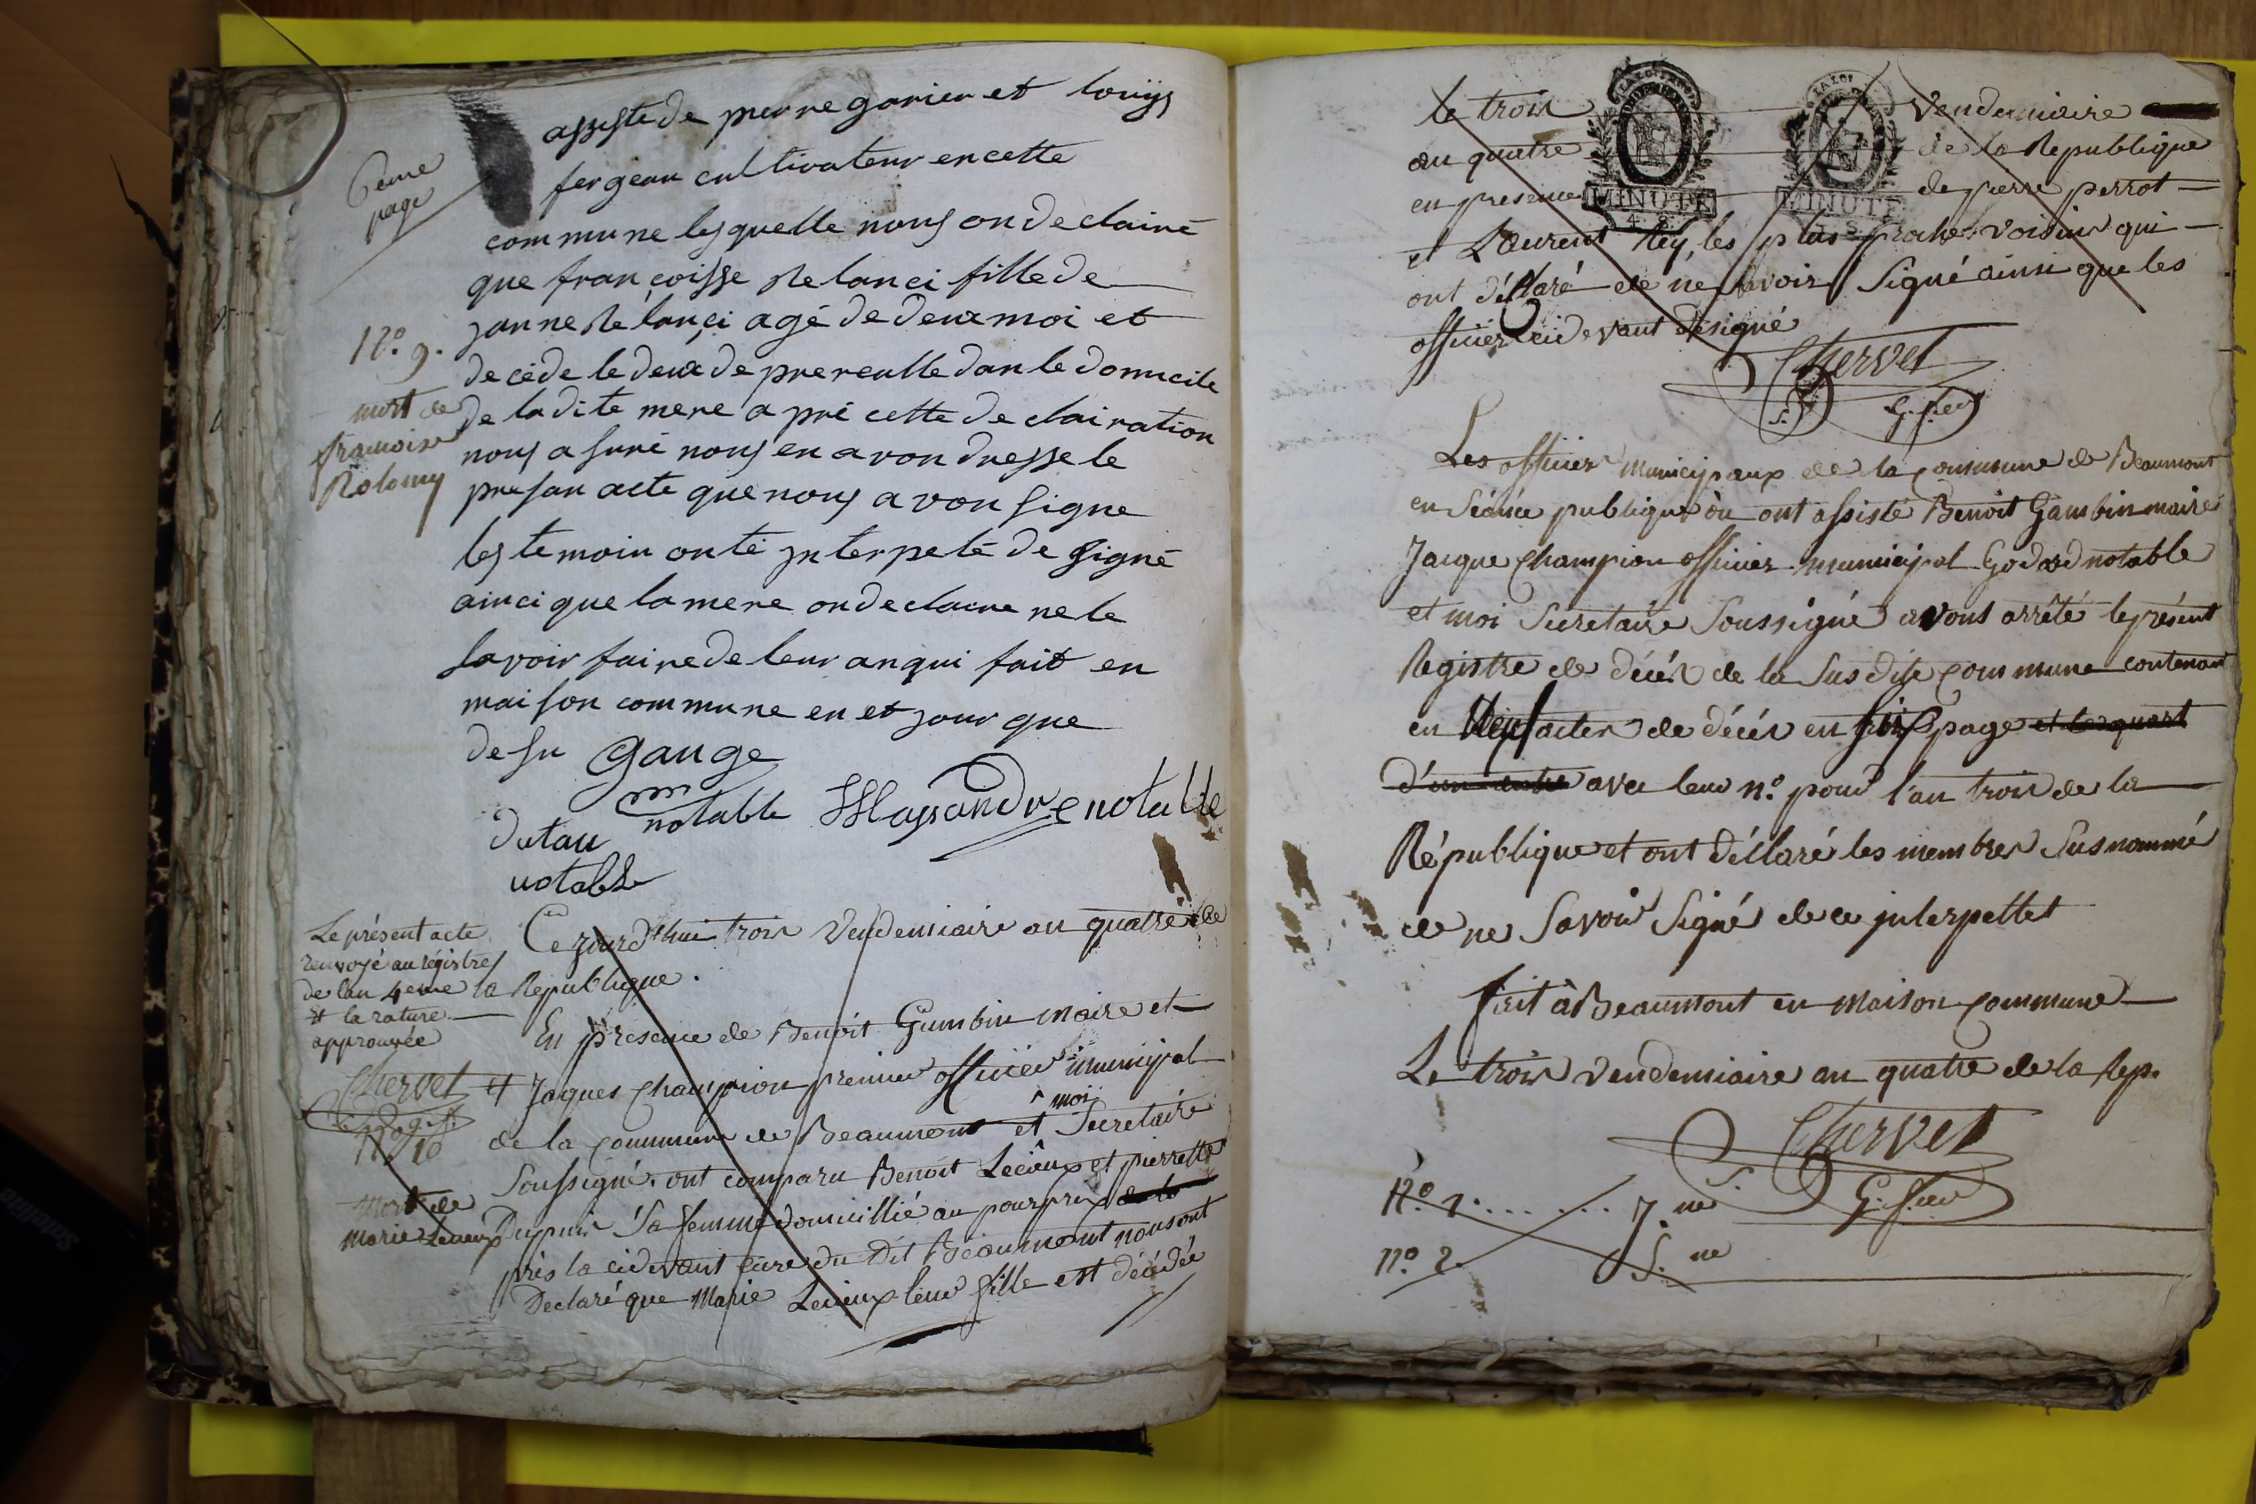 6eme
page
assiste de pierre garier et louijs
fergeau cultivateur en cette
commune lesquelle nous on declairé
que francoisse Relanci fille de
janne Relançi agé de deux moi et
decéde le deux de prereulle dan le domicile
de la dite mere a pré cette de clairation
nous a suré nous en avon dresse le
presan acte que nous avon signe
les temoin on té jnterpelé de signé
ainci que la mere on declaire ne le
savoir faire de leur an qui fait en
maison commune en et jour que
de su gauge
notable Massandre notable
dutau
notable
N°. 9.
mort de
francoise
Rolomy
Le présent acte
renvoyé au régistre
de lan 4eme
et la rature
approuvée
Chervet
N° 10
Mort de
Marie Lecieux
Ce jourd'hui trois Vendemiaire an quatre de
la Republique.
En présence de Benoit Gambin maire et
et Jaques Champion premier officier municipal
de la commune de Beaumont et moi Secretaire
Soussigné. ont comparu Benoit Lecieux et pierrette
Dupuis Sa femme domicillié au pourprix de la
près la cidevant cure du dit Beaumont nous ont
Declaré que Marie Lecieux leur fille est décédée
le trois Vendemiaire
an quatre de la Republique
en presence de pierre perrot
et Laurent Rey, les plus proches voisins qui
ont déclaré de ne savoir Signé ainsi que les
officier cidevant designé
LA LOI
MINUTE
4. S.
LA LOI
MINUTE
Chervet
S. G. secr
Les officier municipaux de la commune de Beaumont
en Séance publique où ont assisté Benoit Gambin maire
Jacque Champion officier municipal Godard notable
et moi Secretaire Soussigné avons arrêté le présent
Registre de décès de la Sus dite commune contenant
en Neuf actes de décès en six page et le quart
d'un autre avec leur n°. pour l'an trois de la
République et ont déclaré les membres Susnommé
de ne Savoir Signé de ce jnterpellet
fait à Beaumont en maison commune
Le trois Vendemiaire an quatre de la Rep.
Chervet
S. G. Secr
N°. 1. . . . . . . 7.ne
N°. 2. S. ne